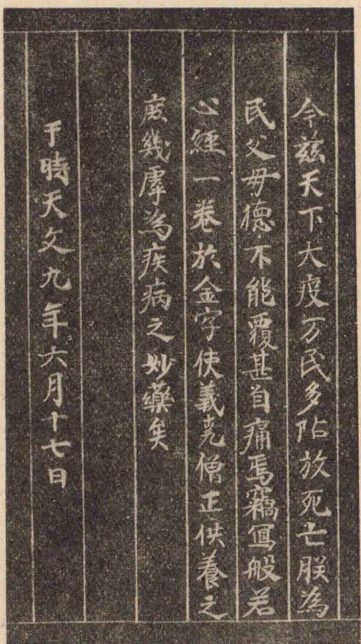 今茲天下大疫万民多阽於死亡朕為
民父母徳不能覆甚自痛焉竊写般若
心経一巻於金字使義尭僧正供養之
庶幾虖為疾病之妙薬矣
于時天文九年六月十七日